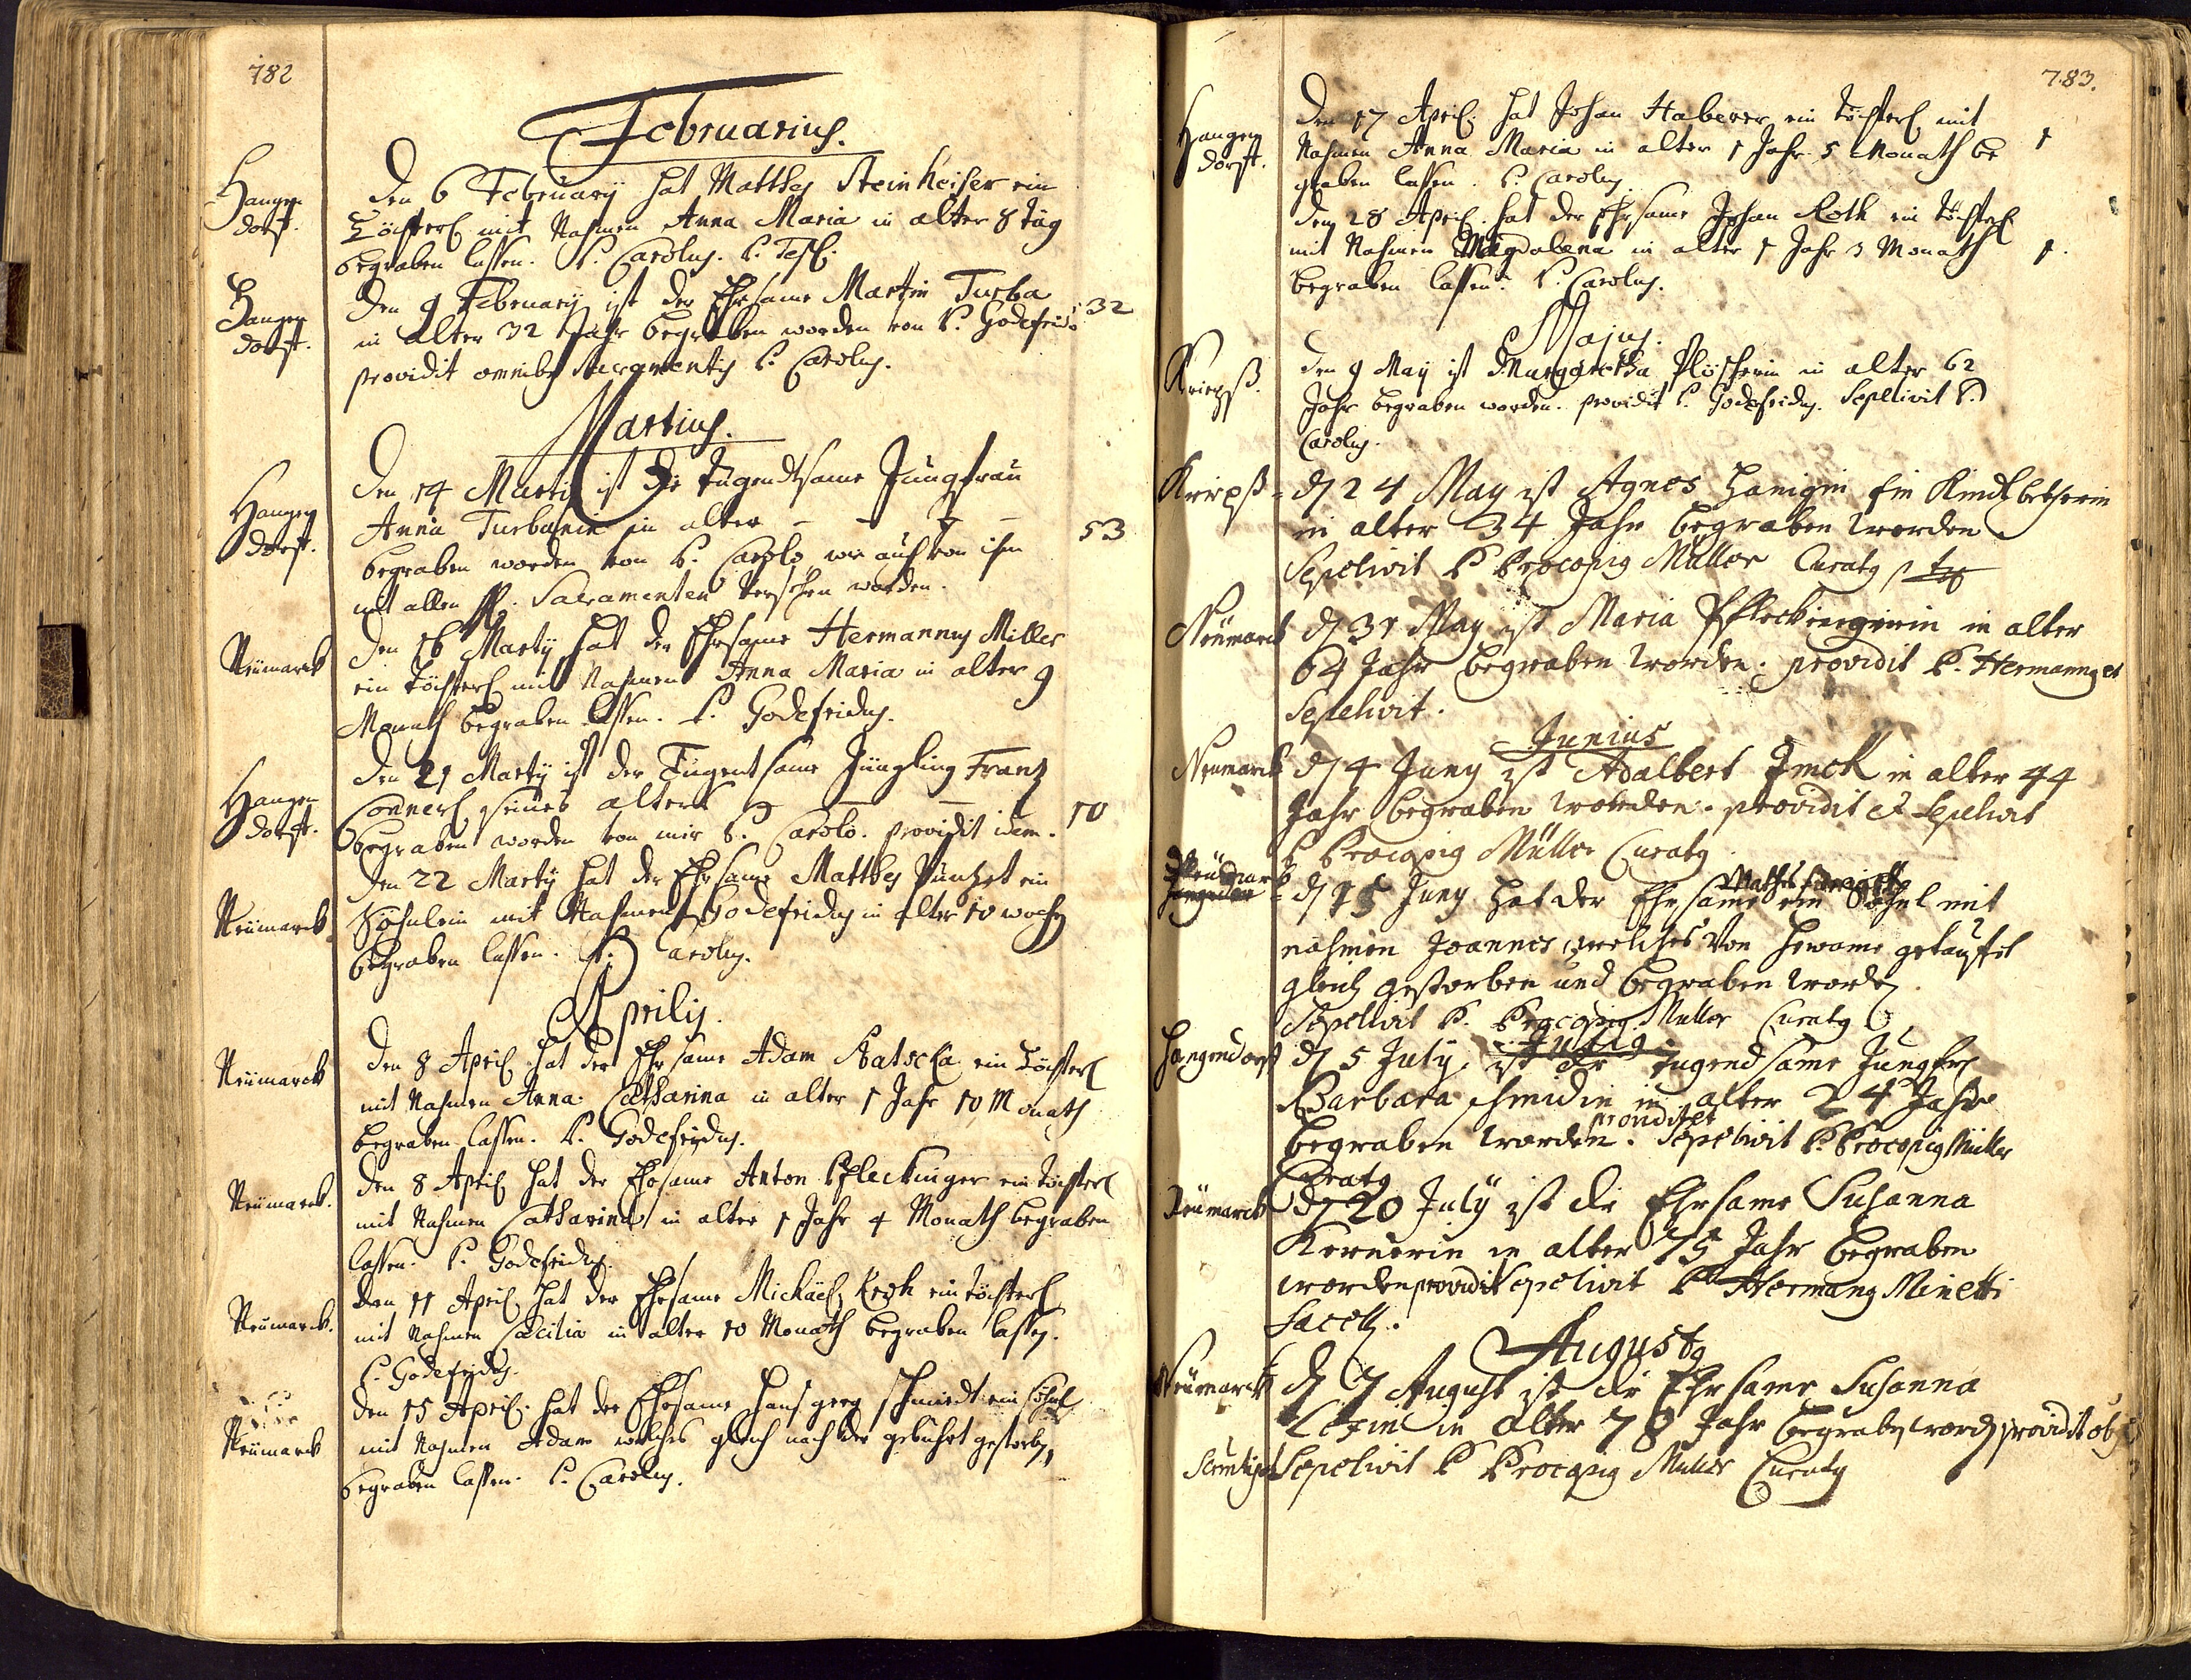 782
Februarius.
Hangen
dorf.
Den 6 February hat Mattheß Steinheiser ein
Töchterl mit Nahmen Anna Maria in alter 8 täg
begraben lassen. P. Carolus.
Hangen
dorff.
Den 9 February ist der Ehrsame Martin Turba
in alter 32 Jahr begraben worden von P. Godefrido
32
providit omnibus Sacramentis P. Carolus.
Martius.
Hangen
dorff.
Den 14 Marti ist die tugendtsame Jungfrau
Anna Turbanin in alter – – –
53
begraben worden von P. Carolo, wie auch von ihm
mit allen Sacramenten versehen worden.
Neümarck
Den 16 Marty hat der Ehrsame Hermannus Miller
ein töchterl mit Nahmen Anna Maria in alter 9
Monath begraben lassen. P. Godefridus.
Hangen
dorff.
Den 21 Marty ist der Tugentsame Jüngling Frantz
Connerl seines alters – –
10
begraben worden von mir P. Carolo. providit idem.
Neümarck
Den 22 Marty hat der Ehrsame Mattheß ein
Söhnlein mit Nahmen Godefridus in alter 10 wochen
begraben lassen. P. Carolus.
Aprilis.
Neümarck
Den 8 April hat der Ehrsame Adam Ratscka ein Töchterl
mit Nahmen Anna Catharina in alter 1 Jahr 10 Monath
begraben lassen. P. Godefridus.
Neümarck.
Den 8 April hat der Ehrsame Anton Pfleckinger ein töchterl
mit Nahmen Catharina in alter 1 Jahr 4 Monath begraben
lassen. P. Godefridus.
Neümarck.
Den 11 April hat der Ehrsame Michäel ein töchterl
mit Nahmen Cæcilia in alter 10 Monath begraben lassen.
P. Godefridus.
Neümarck
Den 15 April hat der Ehrsame Hans georg schmidt ein söhnl
mit Nahmen Adam welches gleich nach der gebuhrt gestorben,
begraben lassen. P. Carolus.
783.
Hangen
dorff.
Den 17 April. hat Johan Haberer ein töchterl mit
Nahmen Anna Maria in alter 1 Jahr 5 Monath be
1
graben lassen. P. Carolus.
Den 28 April. hat der Ehrsame Johan Roth ein töchterl
mit Nahmen Magdalena in alter 1 Jahr 3 Monath
1.
begraben lassen. P. Carolus.
Majus.
Den 9 May ist Margaretha Plöscherin in alter 62
Jahr begraben worden. providit P. Godefridus. Sepelivit P.
Carolus.
d 24 May ist Agnes Hanigin ein Kindlbetherin
in alter 34 Jahr begraben worden
Sepelivit P Procopius Müller Curatus
Neümarck
d 31 May ist Maria Pfleckingerin in alter
64 Jahr begraben worden. providit P. Hermannus et
Sepelivit.
Junius
Neümarck
d 4 Juny ist Adalbert Jmck in alter 44
Jahr begraben worden. providit et Sepelivit
P Procopius Müller Curatus
Neümarck
d 15 Juny hat der Ehrsame ein Söhnl mit
nahmen Joannes, welches von Hewame getauffet
gleich gestorben und begraben worden.
Sepelivit P. Procopius Müller Curatus
Julius
Hangendorf
d 5 July, ist die tugendsame Jungfer
Barbara schmidin in alter 24 Jahr
begraben worden. providit et Sepelivit P. Procopius Müller
Curatus
Neümarck
d 20 July ist die Ehrsame Susanna
Kernerin in alter 75 Jahr begraben
worden providit Sepelivit P Hermanus Minetti
Sacell.
Augustus
Neümarck
d 7 August ist die Ehrsame Susanna
Lexin in alter 78 Jahr begraben worden providit
Sepelivit P Procopius Müller Curatus